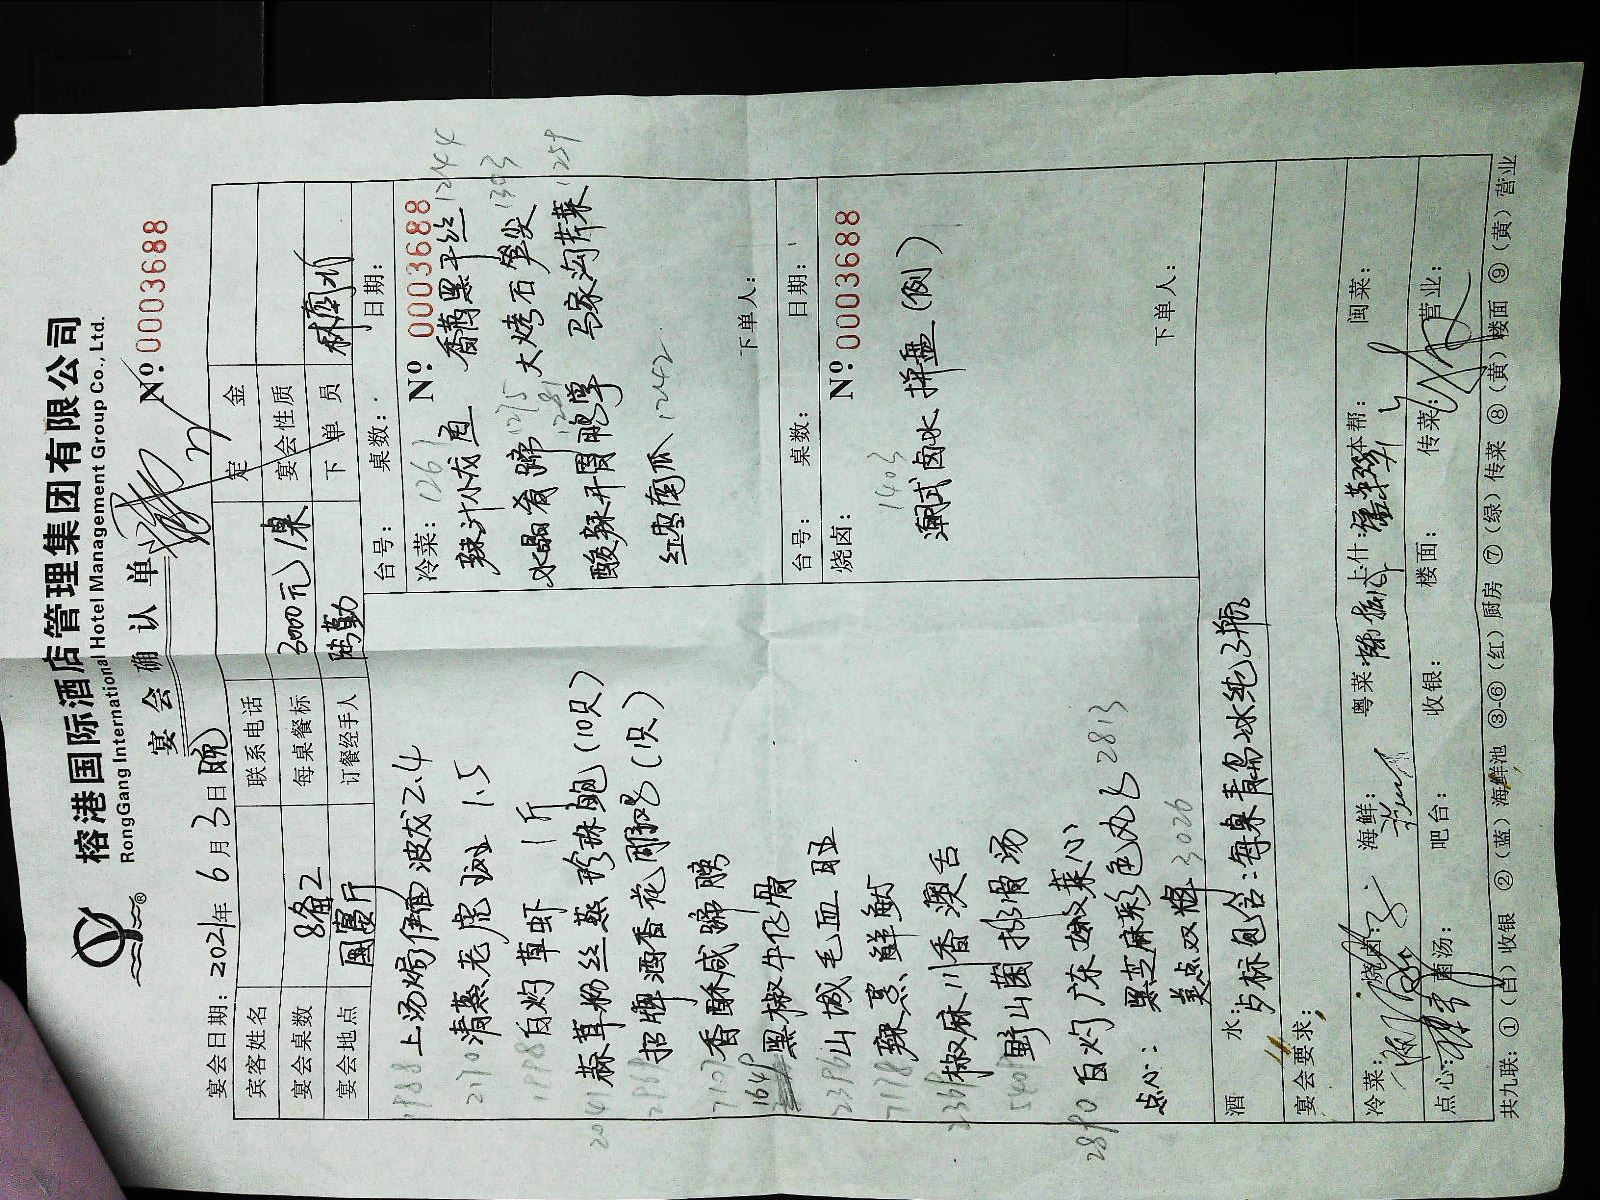 榕港国际酒店管理集团有限公司
RongGang International Hotel Management Group Co., Ltd.
®
宴会确认单
Nº:0003688
宴会日期: 2021年 6月 3日 晚
宾客姓名
联系电话
定金
宴会桌数 8备2
每桌餐标 3000元/桌
宴会性质
宴会地点 國宴厅
订餐经手人 陆勤
下单员
1988 上汤焗伊面波龙2.4
2170 清蒸老虎斑 1.5
1998 白灼草虾 1斤
2041 蒜茸粉丝蒸珍珠鲍(10只)
招牌酒香花雕鸡(1只)
7107 香酥咸蹄膀
1649 黑椒牛仔骨
山城毛血旺
7178 辣炒鲜鱿
椒麻川香澳舌
野山菌排骨汤
2890 白灼广东嫩菜心
点心: 黑芝麻彩色丸子 2813
美点双辉 3026
台号: 桌数: 日期:
冷菜: Nº:0003688
1261 1244
辣汁小龙虾 香菌黑干丝
1275 1303
水晶肴蹄 大烤石笋尖
1281 1259
酸辣开胃脆笋 马家沟芹菜
红枣南瓜 1242
下单人:
台号: 桌数: 日期:
烧卤: Nº:0003688
1403
潮式卤水拼盘(例)
下单人:
酒水: 占标包含:每桌青岛冰纯3瓶
宴会要求:
冷菜: 烧卤: 海鲜: 粤菜 上什: 本帮: 闽菜:
点心: 菌汤: 吧台: 收银: 楼面: 传菜: 营业:
共九联: ①(白)收银 ②(蓝)海鲜池 ③-⑥(红)厨房 ⑦(绿)传菜 ⑧(黄)楼面 ⑨(黄)营业